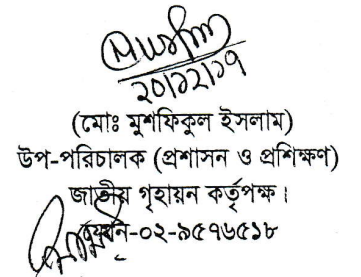 ২০/১২/১৭
(মোঃ মুশফিকুল ইসলাম)
উপ-পরিচালক (প্রশাসন ও প্রশিক্ষণ)
জাতীয় গৃহায়ন কর্তৃপক্ষ।
ফোন-০২-৯৫৭৬৫১৮